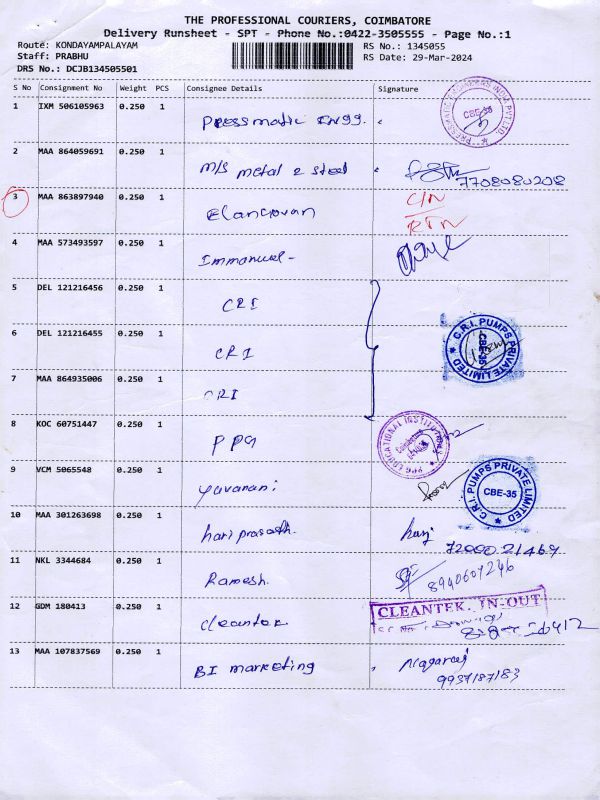 THE PROFESSIONAL COURIERS, COIMBATORE
Delivery Runsheet - SPT - Phone No.:0422-3505555 - Page No.:1
Route: KONDAYAMPALAYAM
Staff: PRABHU
DRS No.: DCJB134505501
RS No.: 1345055
RS Date: 29-Mar-2024
S No Consignment No Weight PCS Consignee Details Signature
1 IXM 506105963 0.250 1 Pressmatic Engg.
PRESSMATIC ENGINEERS INDIA PVT LTD CBE-35
2 MAA 864059691 0.250 1 M/s metal & steel
7708080208
3 MAA 863897940 0.250 1 Elangovan C/N
RTN
4 MAA 573493597 0.250 1 Immanuel-
5 DEL 121216456 0.250 1 CRI
6 DEL 121216455 0.250 1 CRI
C.R.I. PUMPS PRIVATE LIMITED CBE-35
7 MAA 864935006 0.250 1 CRI
8 KOC 60751447 0.250 1 PPG
PPG EDUCATIONAL INSTITUTIONS
9 VCM 5065548 0.250 1 Yuvarani
C.R.I. PUMPS PRIVATE LIMITED CBE-35
10 MAA 301263698 0.250 1 hari prasath. hari
72000 21469
11 NKL 3344684 0.250 1 Ramesh.
8940607246
12 GDM 180413 0.250 1 Cleantek
CLEANTEK. IN-OUT
13 MAA 107837569 0.250 1 BI marketing Nagaraj
9937187183